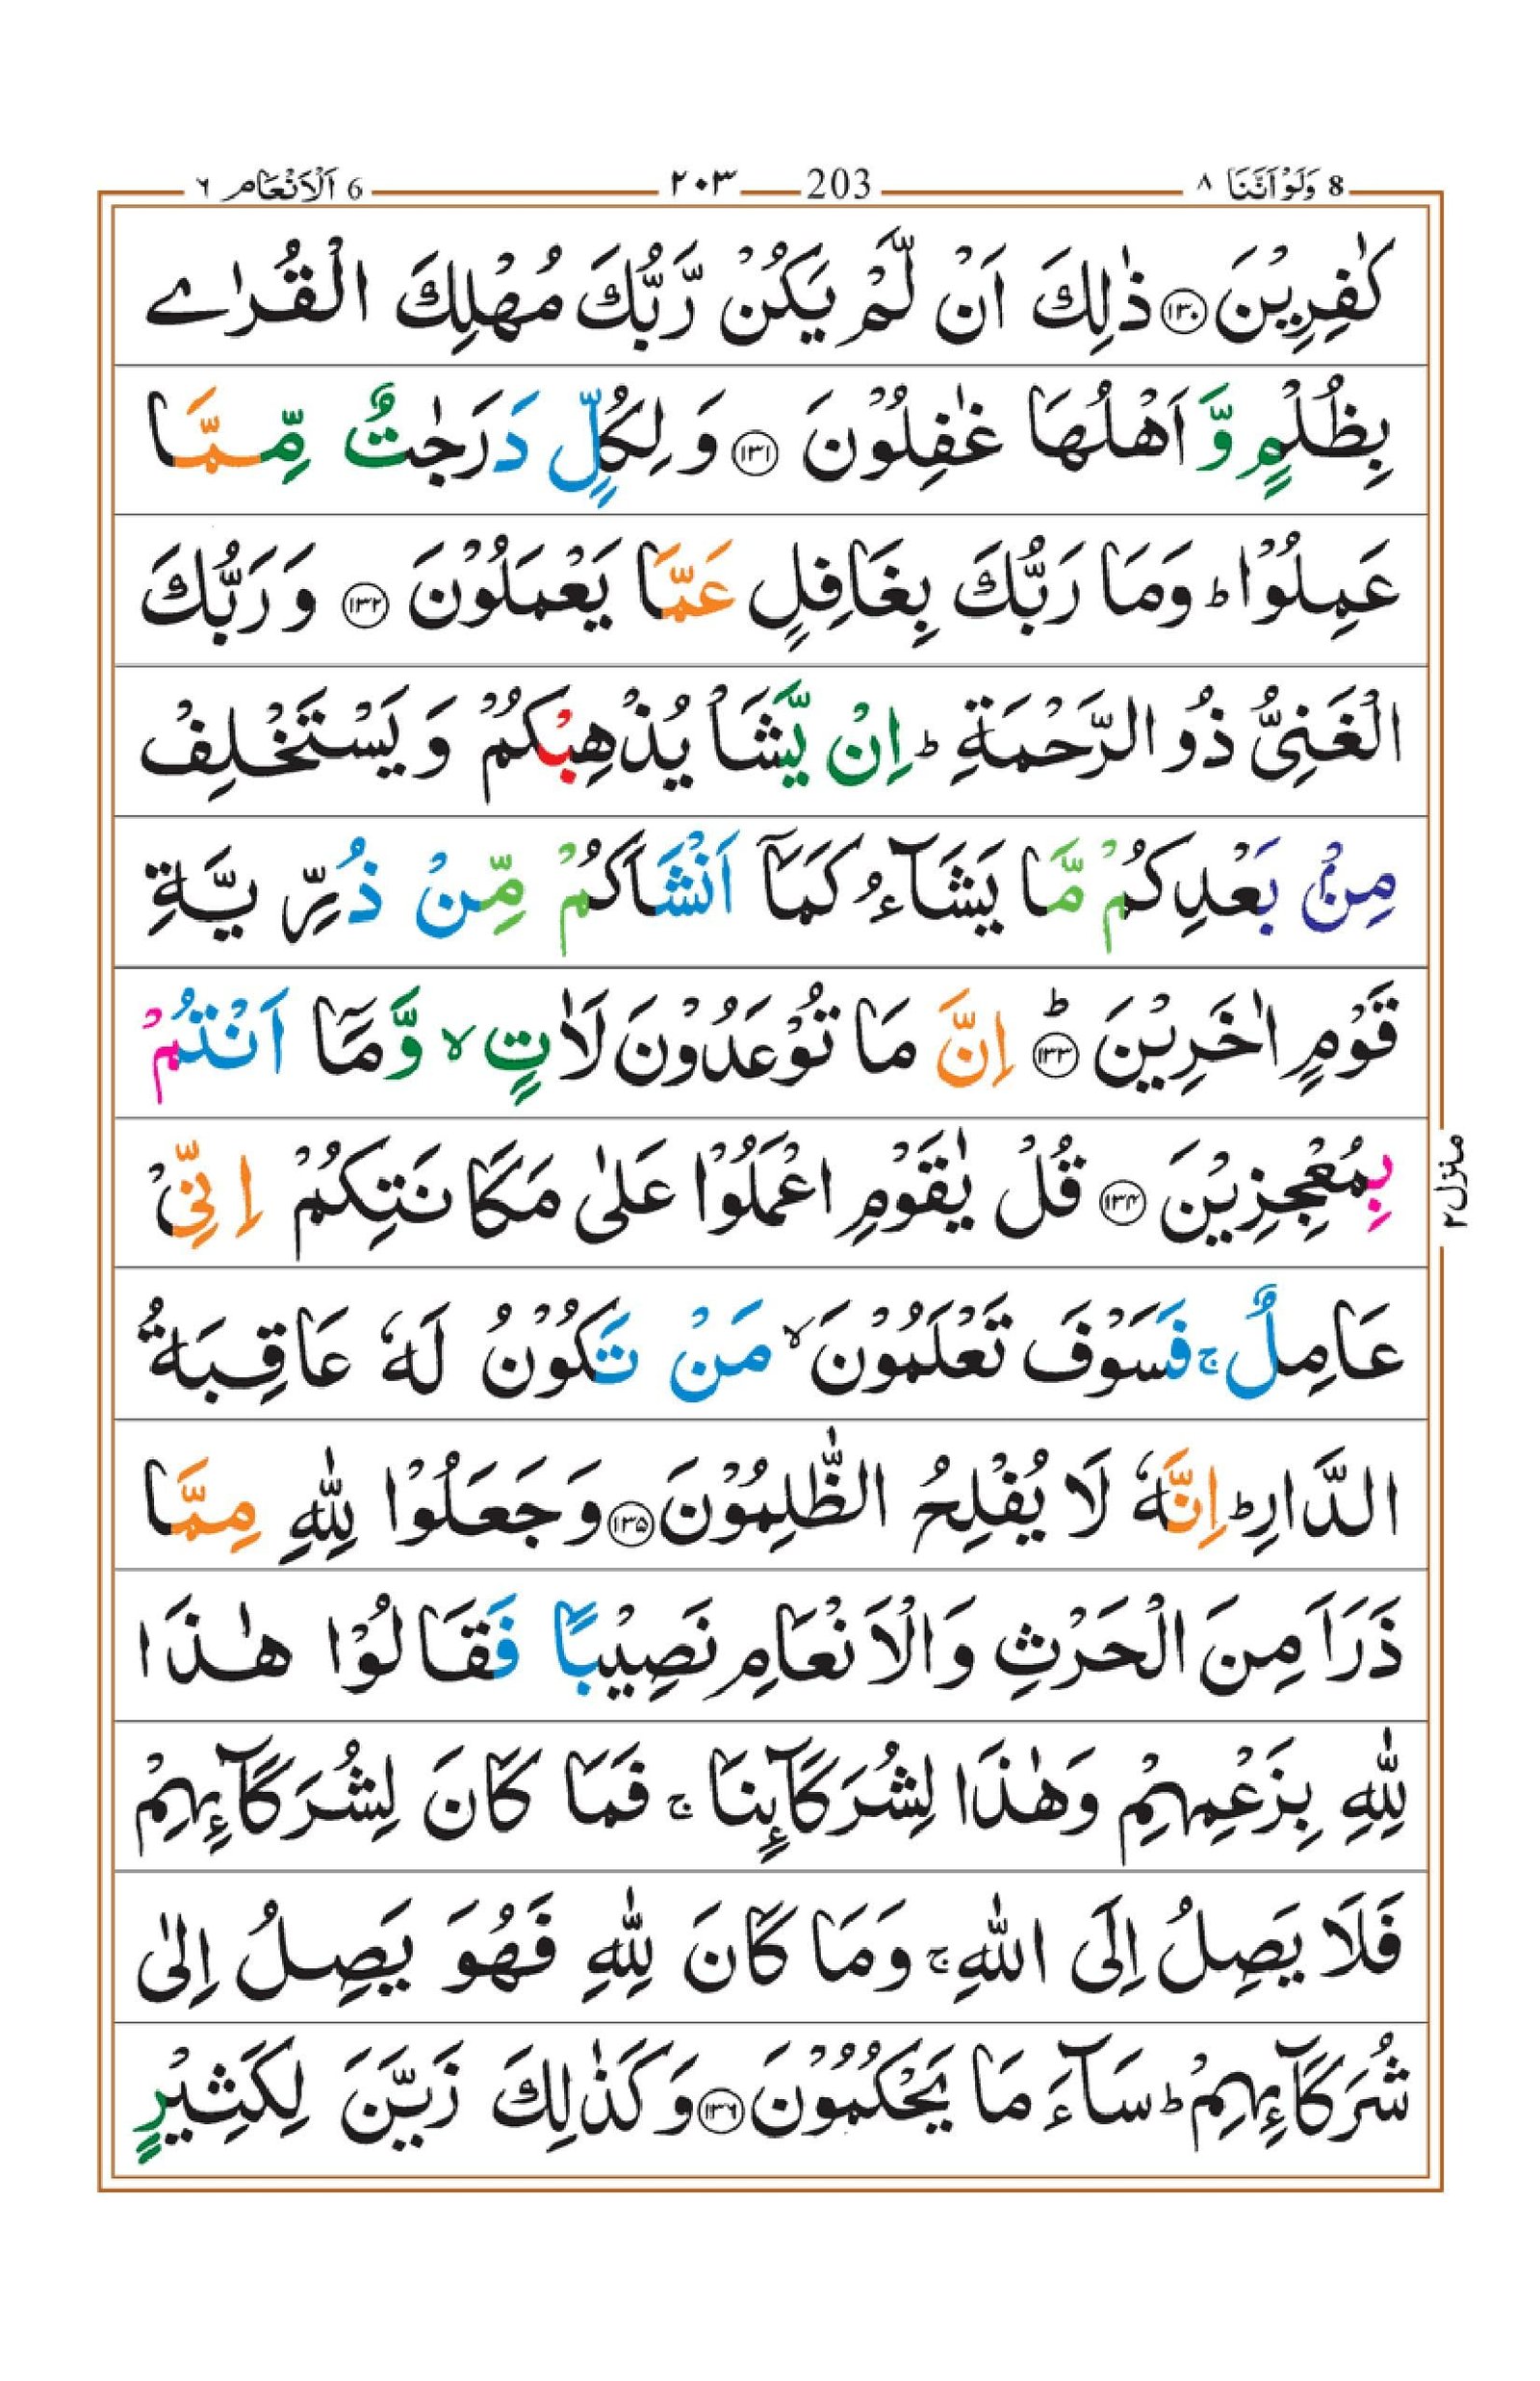 8 وَلَوْ اَنَّنَا ٨ 203 ٢٠٣ 6 اَلْاَنْعَام ٦
كٰفِرِيْنَ ﴿۱۳۰﴾ ذٰلِكَ اَنْ لَّمْ يَكُنْ رَّبُّكَ مُهْلِكَ الْقُرٰى
بِظُلْمٍ وَّ اَهْلُهَا غٰفِلُوْنَ ﴿۱۳۱﴾ وَ لِكُلٍّ دَرَجٰتٌ مِّمَّا
عَمِلُوْا ؕ وَمَا رَبُّكَ بِغَافِلٍ عَمَّا يَعْمَلُوْنَ ﴿۱۳۲﴾ وَ رَبُّكَ
الْغَنِىُّ ذُو الرَّحْمَةِ ؕ اِنْ يَّشَاْ يُذْهِبْكُمْ وَ يَسْتَخْلِفْ
مِنْۢ بَعْدِكُمْ مَّا يَشَآءُ كَمَاۤ اَنْشَاَكُمْ مِّنْ ذُرِّيَّةِ
قَوْمٍ اٰخَرِيْنَ ﴿۱۳۳﴾ؕ اِنَّ مَا تُوْعَدُوْنَ لَاٰتٍ ۙ وَّمَاۤ اَنْتُمْ
بِمُعْجِزِيْنَ ﴿۱۳۴﴾ قُلْ يٰقَوْمِ اعْمَلُوْا عَلٰى مَكَانَتِكُمْ اِنِّىْ
عَامِلٌ ۚ فَسَوْفَ تَعْلَمُوْنَ ۙ مَنْ تَكُوْنُ لَهٗ عَاقِبَةُ
الدَّارِ ؕ اِنَّهٗ لَا يُفْلِحُ الظّٰلِمُوْنَ ﴿۱۳۵﴾ وَجَعَلُوْا لِلّٰهِ مِمَّا
ذَرَاَ مِنَ الْحَرْثِ وَالْاَنْعَامِ نَصِيْبًا فَقَالُوْا هٰذَا
لِلّٰهِ بِزَعْمِهِمْ وَهٰذَا لِشُرَكَآئِنَا ۚ فَمَا كَانَ لِشُرَكَآئِهِمْ
فَلَا يَصِلُ اِلَى اللّٰهِ ۚ وَمَا كَانَ لِلّٰهِ فَهُوَ يَصِلُ اِلٰى
شُرَكَآئِهِمْ ؕ سَآءَ مَا يَحْكُمُوْنَ ﴿۱۳۶﴾ وَكَذٰلِكَ زَيَّنَ لِكَثِيْرٍ
منزل ۲